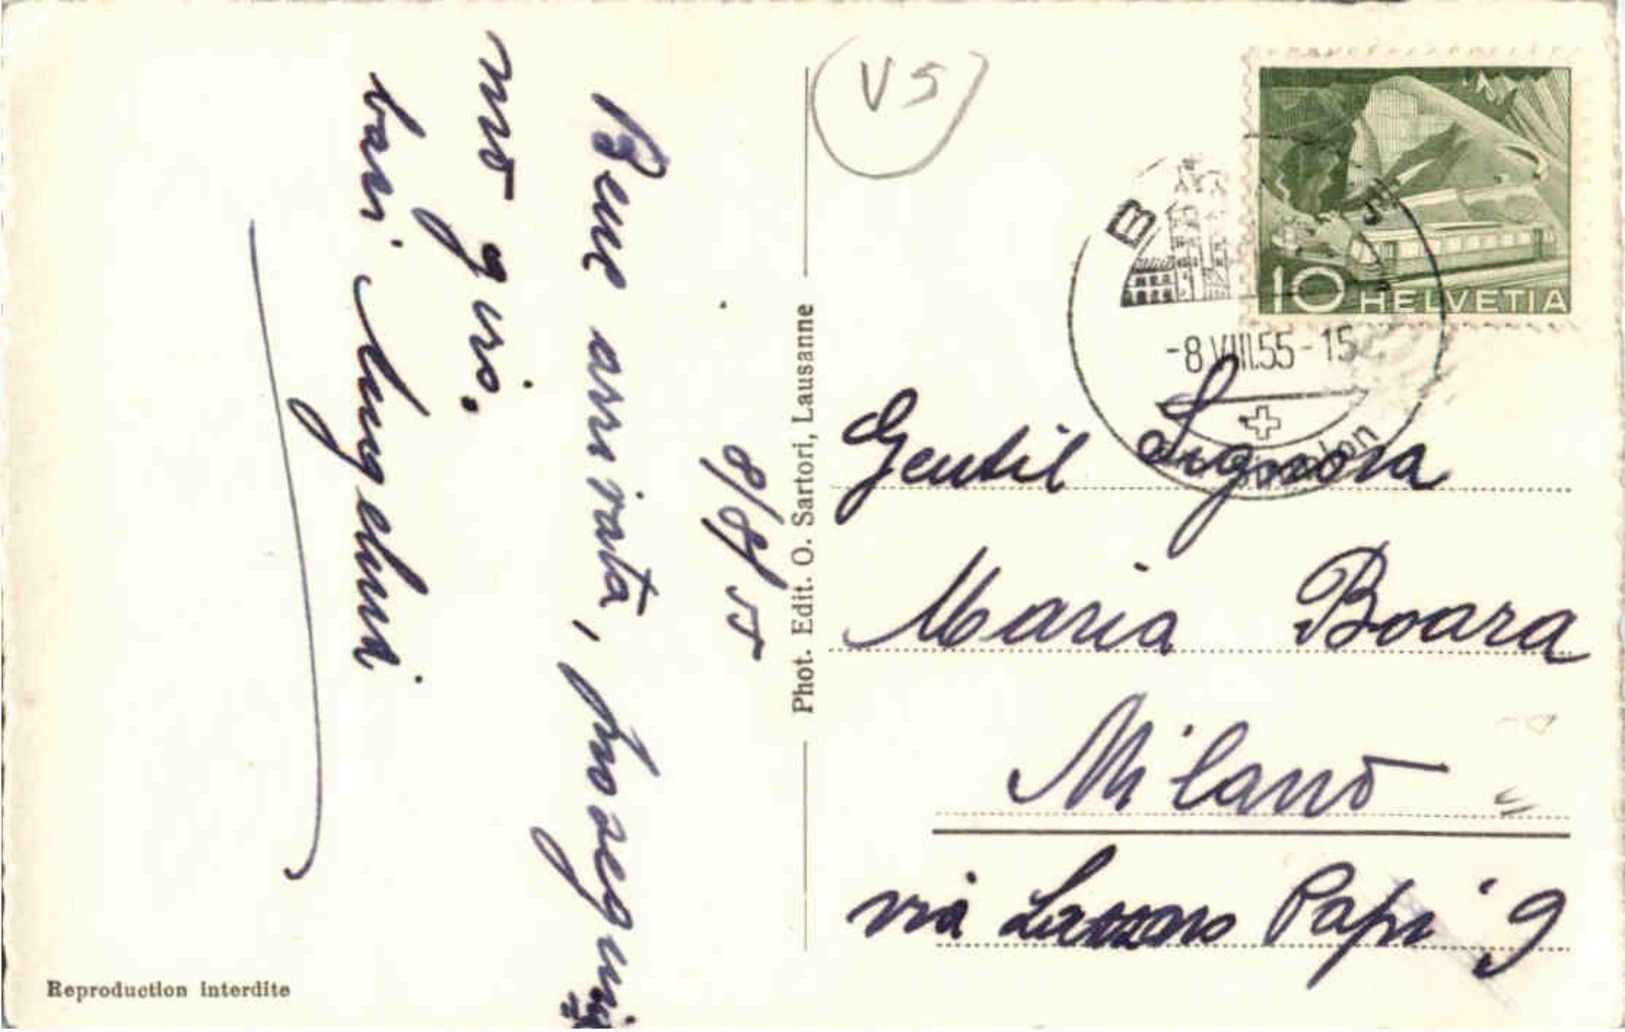 8/8/55
Bene arrivata, prosegui=
mo giro.
bari
V S
10 HELVETIA
B
-8.VIII.55-15
Gentil Signora
Maria Boara
Milano
via Lazzaro Papi 9
Phot. Edit. O. Sartori, Lausanne
Reproduction interdite